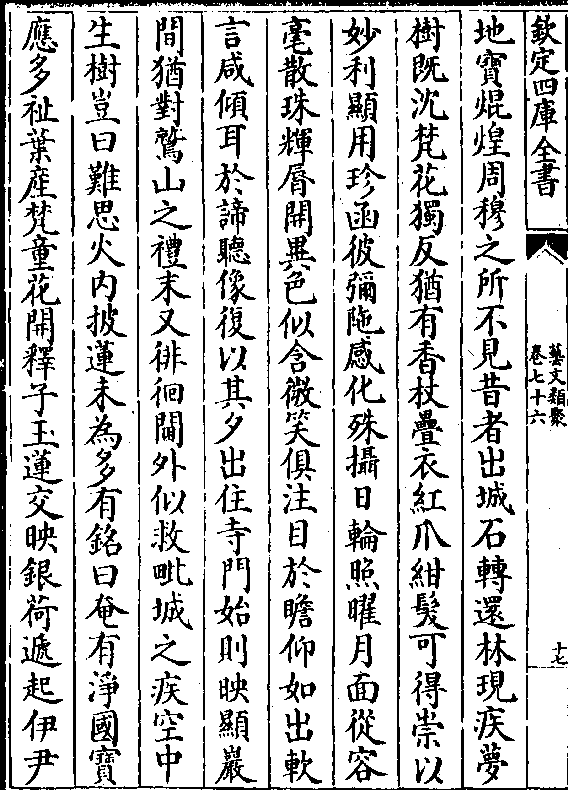 欽定四庫全書
藝文類聚
卷七十六
十七
地寶焜煌周穆之所不見昔者出城石轉還林現疾夢
樹既沈梵花獨反猶有香杖疊衣紅爪紺髮可得崇以
妙利顯用珍函彼彌陁感化殊攝日輪照曜月面從容
毫散珠輝脣開異色似含微笑俱注目於瞻仰如出軟
言咸傾耳於諦聽像復以其夕出住寺門始則映顯巖
間猶對鷲山之禮末又徘徊閫外似救毗城之疾空中
生樹豈曰難思火内披蓮未為多有銘曰奄有淨國寶
應多祉葉産梵童花開釋子玉蓮交映銀荷遞起伊尹